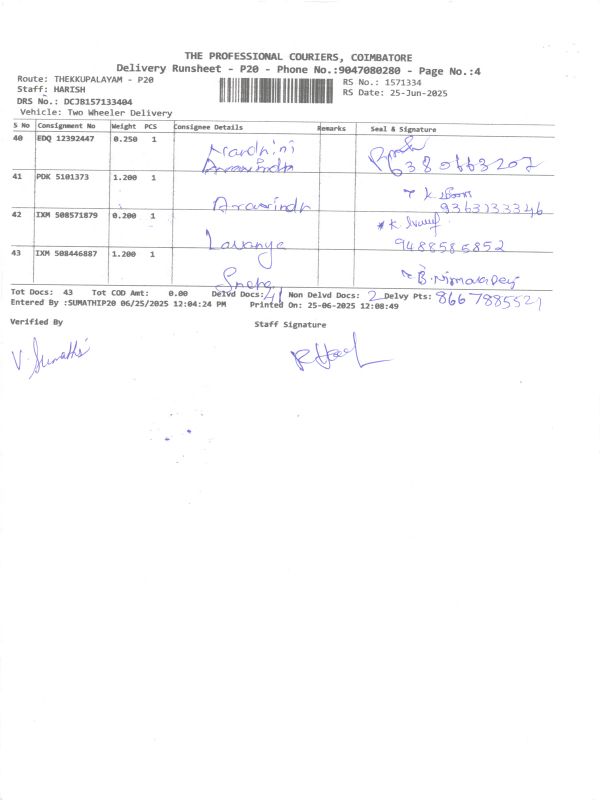 THE PROFESSIONAL COURIERS, COIMBATORE
Delivery Runsheet - P20 - Phone No.:9047080280 - Page No.:4
Route: THEKKUPALAYAM - P20
RS No.: 1571334
Staff: HARISH
RS Date: 25-Jun-2025
DRS No.: DCJ8157133404
Vehicle: Two Wheeler Delivery
S No Consignment No Weight PCS Consignee Details Remarks Seal & Signature
40 EDQ 12392447 0.250 1 Nandhini
Aravindh 6380663207
41 PDK 5101373 1.200 1
Aravindh 9363133346
42 IXM 508571879 0.200 1
Lavanya 9488585852
43 IXM 508446887 1.200 1
Sneha B. Nirmala Devi
Tot Docs: 43 Tot COD Amt: 0.00 Delvd Docs: 41 Non Delvd Docs: 2 Delvy Pts: 8667885521
Entered By :SUMATHIP20 06/25/2025 12:04:24 PM Printed On: 25-06-2025 12:08:49
Verified By
Staff Signature
V. Sumathi